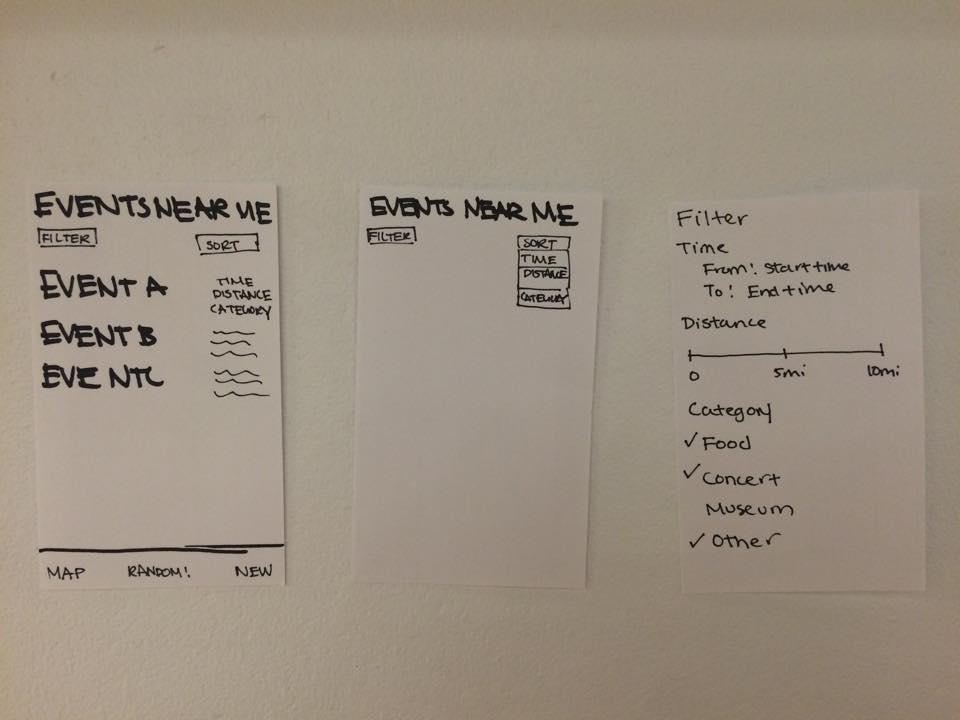 EVENTS NEAR ME
FILTER
SORT
EVENT A
TIME
DISTANCE
CATEGORY
EVENT B
EVENT C
MAP RANDOM! NEW
EVENTS NEAR ME
FILTER
SORT
TIME
DISTANCE
CATEGORY
Filter
Time
From: Start time
To: End time
Distance
0 5mi 10mi
Category
✓ Food
✓ Concert
Museum
✓ Other